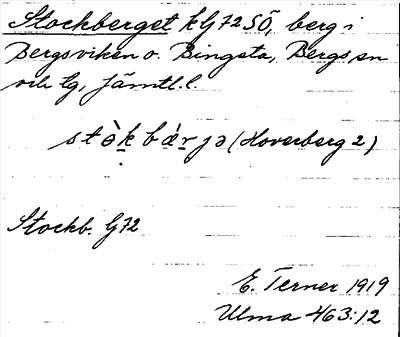 Stockberget klj 72 SÖ, berg i
Bergsviken o. Bingsta, Bergs sn
och tg, Jämtl. l.
stòk bǽr jə (Hoverberg 2)
Stockb. lj 72
E. Terner 1919
Ulma 463:12